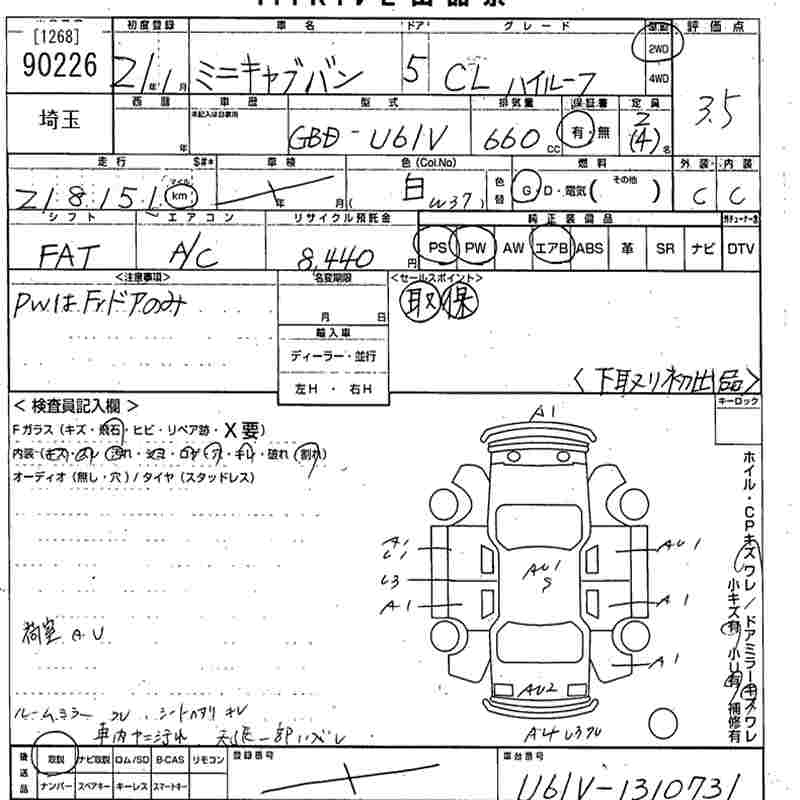 [1268]
90226
埼玉
初度登録 車名 ドア グレード 駆動 評価点
21年1月 ミニキャブバン 5 CL ハイルーフ 2WD 4WD 3.5
西暦 車歴 型式 排気量 保証書 定員
年 GBD-U61V 660cc 有・無 2(4)名
走行 車検 色(Col.No) 燃料 外装・内装
218151 マイル km 年 月( 白 W37) 色替 G・D・電気( その他 ) C C
シフト エアコン リサイクル預託金 純正装備品
FAT A/C 8,440円 PS PW AW エアB ABS 革 SR ナビ DTV
<注意事項> 名変期限 <セールスポイント>
PWはFrドアのみ 月 日 取 保
輸入車
ディーラー・並行
左H・右H
<下取り初出品>
キーロック
<検査員記入欄>
Fガラス(キズ・飛石・ヒビ・リペア跡・X要)
オーディオ(無し・穴)/タイヤ(スタッドレス)
A1
A1 U1 AU1
U3 AU1 S
A1 A1
A1
AU2
荷室 AU
ホイル・CPキズワレ/ドアミラーキズワレ
小キズ有 小U有 補修有
ルームミラー
車内ヤニ汚れ
後送品 取説 ナビ取説 ロム/SD B-CAS リモコン
ナンバー スペアキー キーレス スマートキー
登録番号
車台番号
U61V-1310731